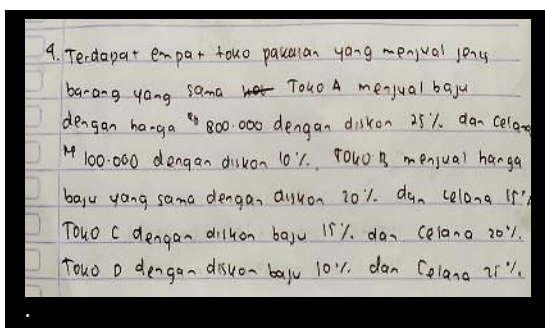 4. Terdapat empat toko pakaian yang menjual jenis
barang yang sama Toko A menjual baju
dengan harga Rp 800.000 dengan diskon 25% dan celana
Rp 100.000 dengan diskon 10%. Toko B menjual harga
baju yang sama dengan diskon 20% dan celana 15%
Toko C dengan diskon baju 15% dan celana 20%.
Toko D dengan diskon baju 10% dan Celana 25%.